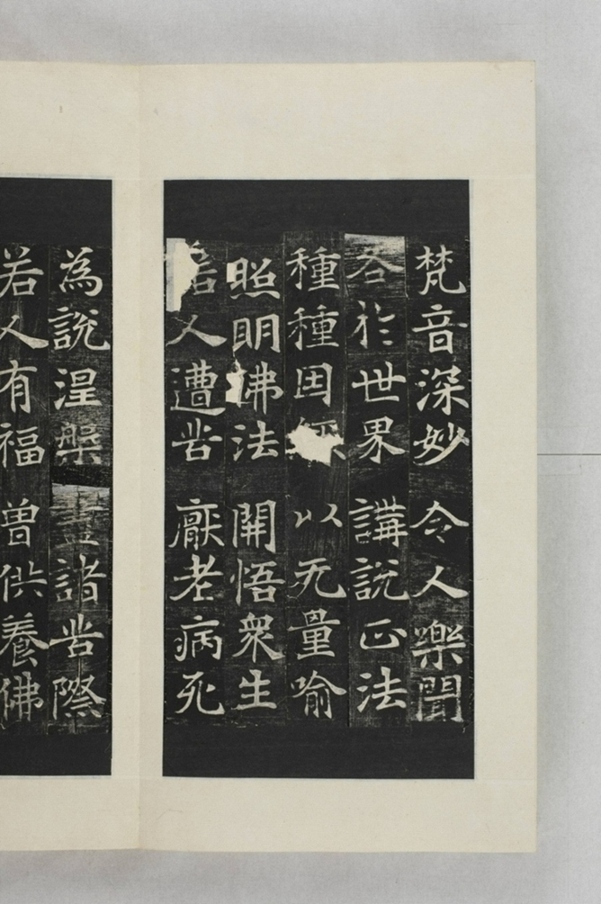 梵音深妙 令人樂聞
各於世界 講說正法
種種因 以无量喻
照明佛法 開悟衆生
若人遭苦 厭老病死
為說涅槃 盡諸苦際
若人有福 曾供養佛